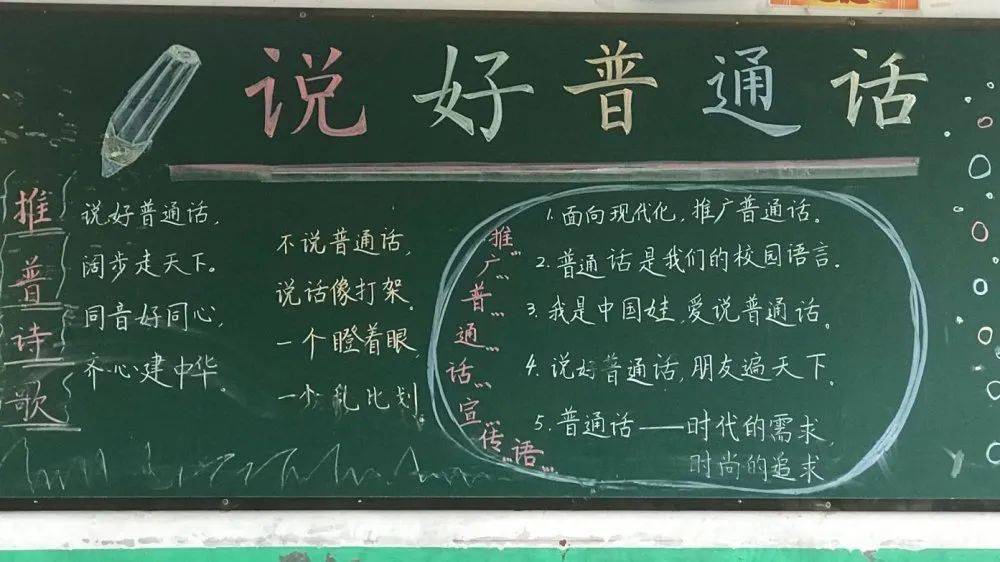 说好普通话
推普诗歌
说好普通话,
阔步走天下。
同音好同心,
齐心建中华。
不说普通话,
说话像打架。
一个瞪着眼,
一个乱比划。
推广普通话宣传语
1. 面向现代化,推广普通话。
2. 普通话是我们的校园语言。
3. 我是中国娃,爱说普通话。
4. 说好普通话,朋友遍天下。
5. 普通话——时代的需求,
时尚的追求